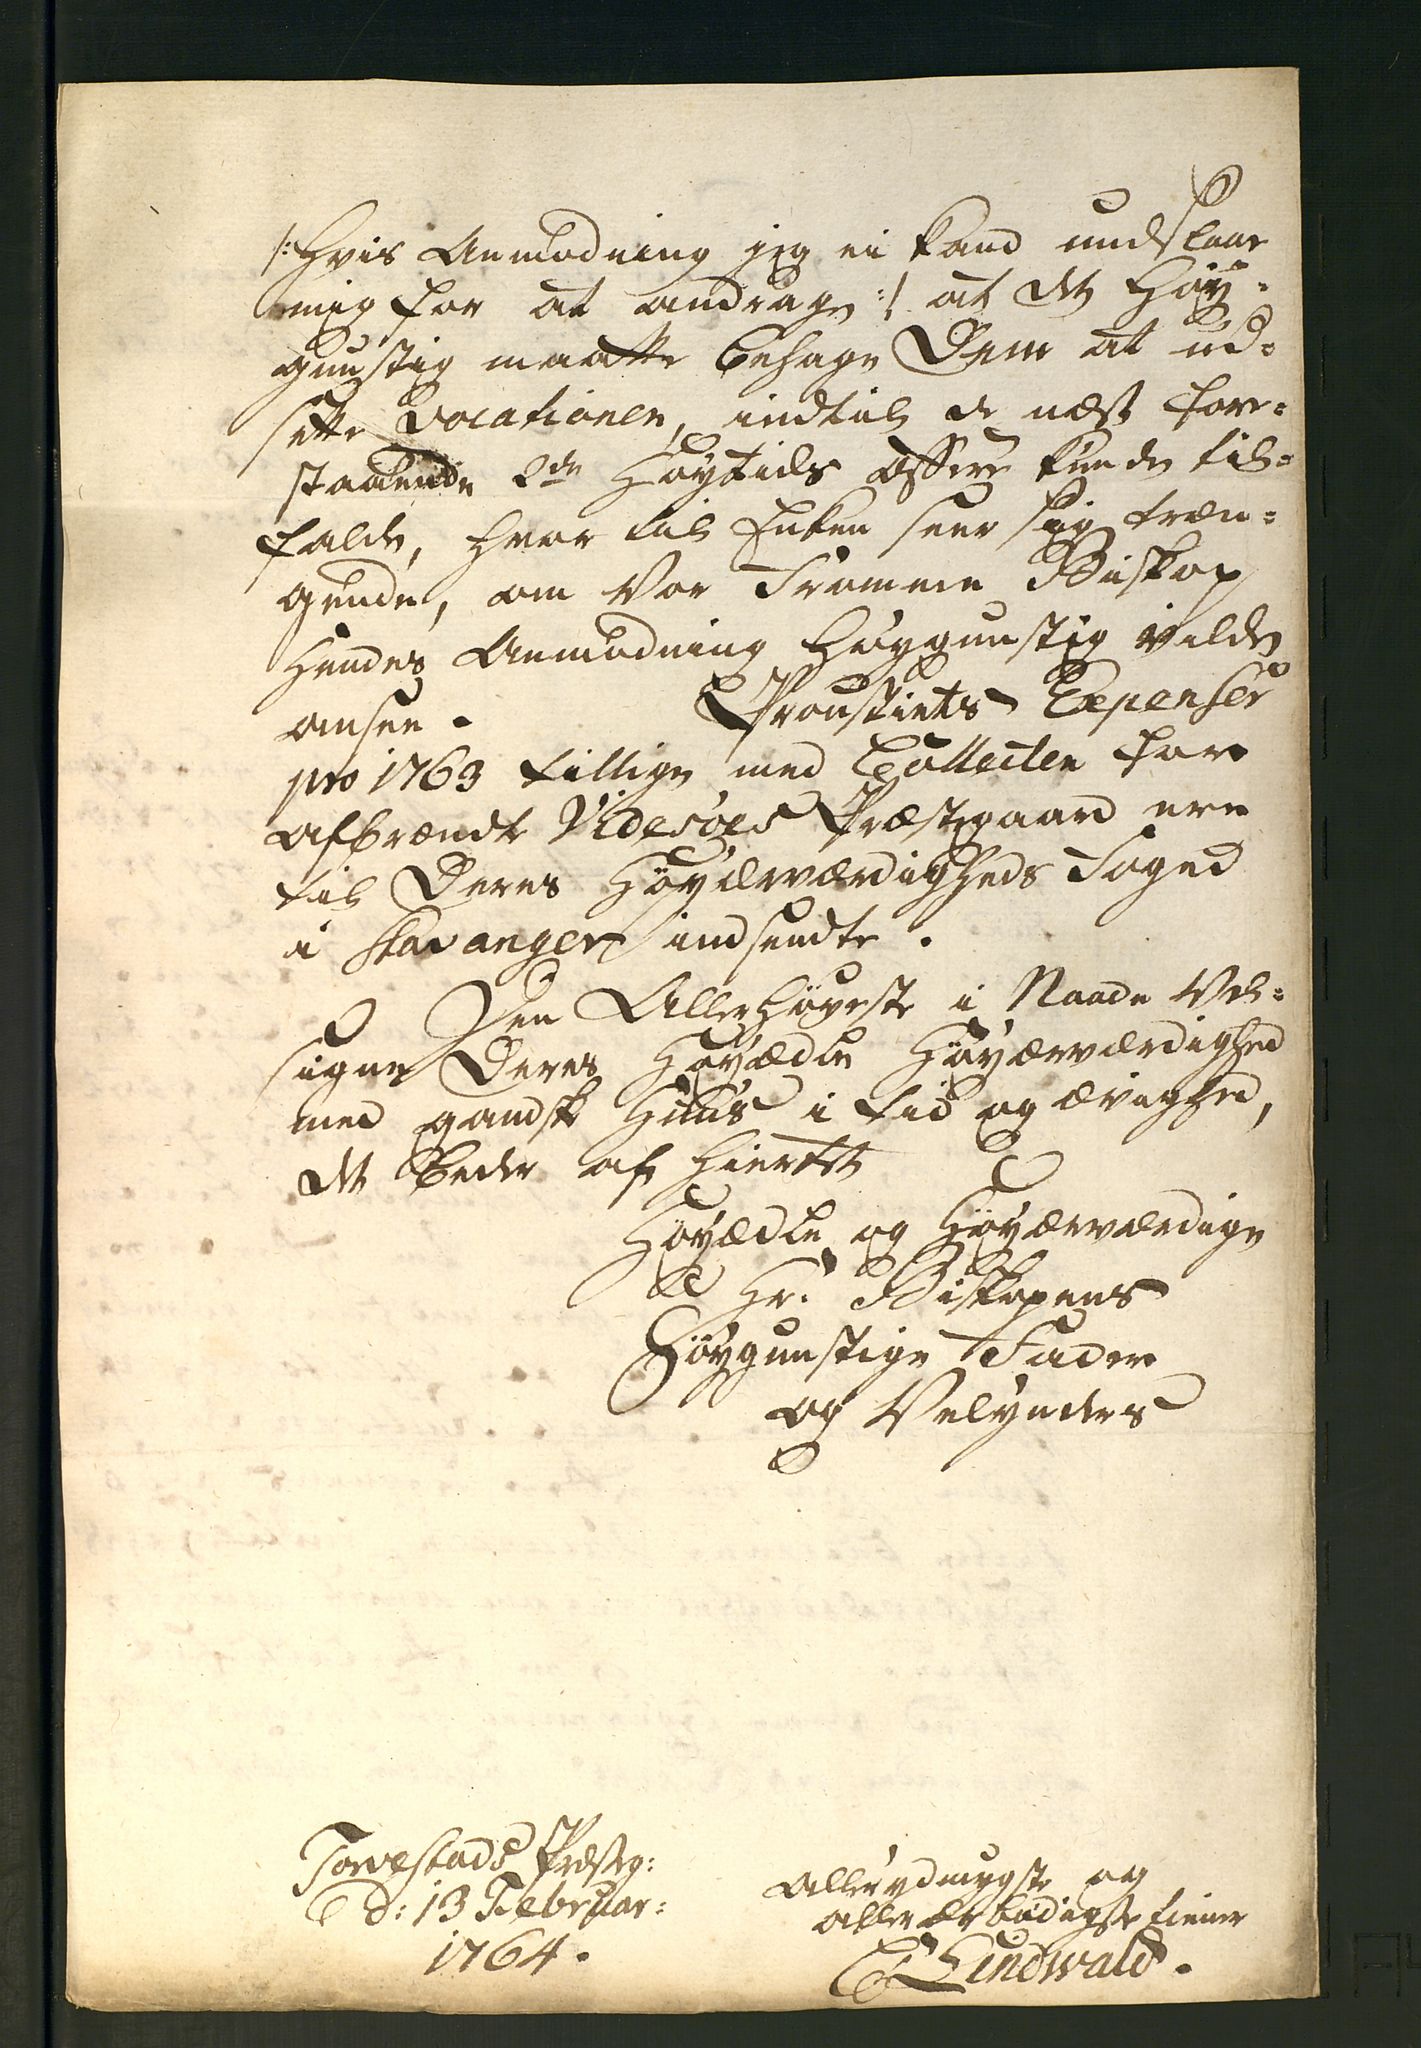 /: hvis Anmodning jeg ei kand undslaae
mig for at andrage :/ at det Høy-
gunstig maatte behage Dem at ud-
sette Vocationen, indtil de næst fore-
staaende 2de Høytids Offere kunde til-
falde, hvor til Enken seer sig træn-
gende, om Vor Fromme Biskop
Hendes Anmodning høygunstig vilde
ansee. Proustiets Expenser
pro 1763 tillige med Collecten for
afbrændte Videsøes Præstegaard ere
til Deres Høyærværdigheds Foged
i Stavanger indsendte.
Den Allerhøyeste i Naade Vel-
signe Deres Høyædle Høyærværdighed
med gandske Huus i tid og ævighed,
det beder af hiertet
Høyædle og Høyærværdige
Hr. Biskopens
Høygunstige Faders
og Velynders
Torvestads Præsteg:
d: 13 Februar:
1764.
Allerydmygste og
allerærbødigste tiener
E Lindwald.